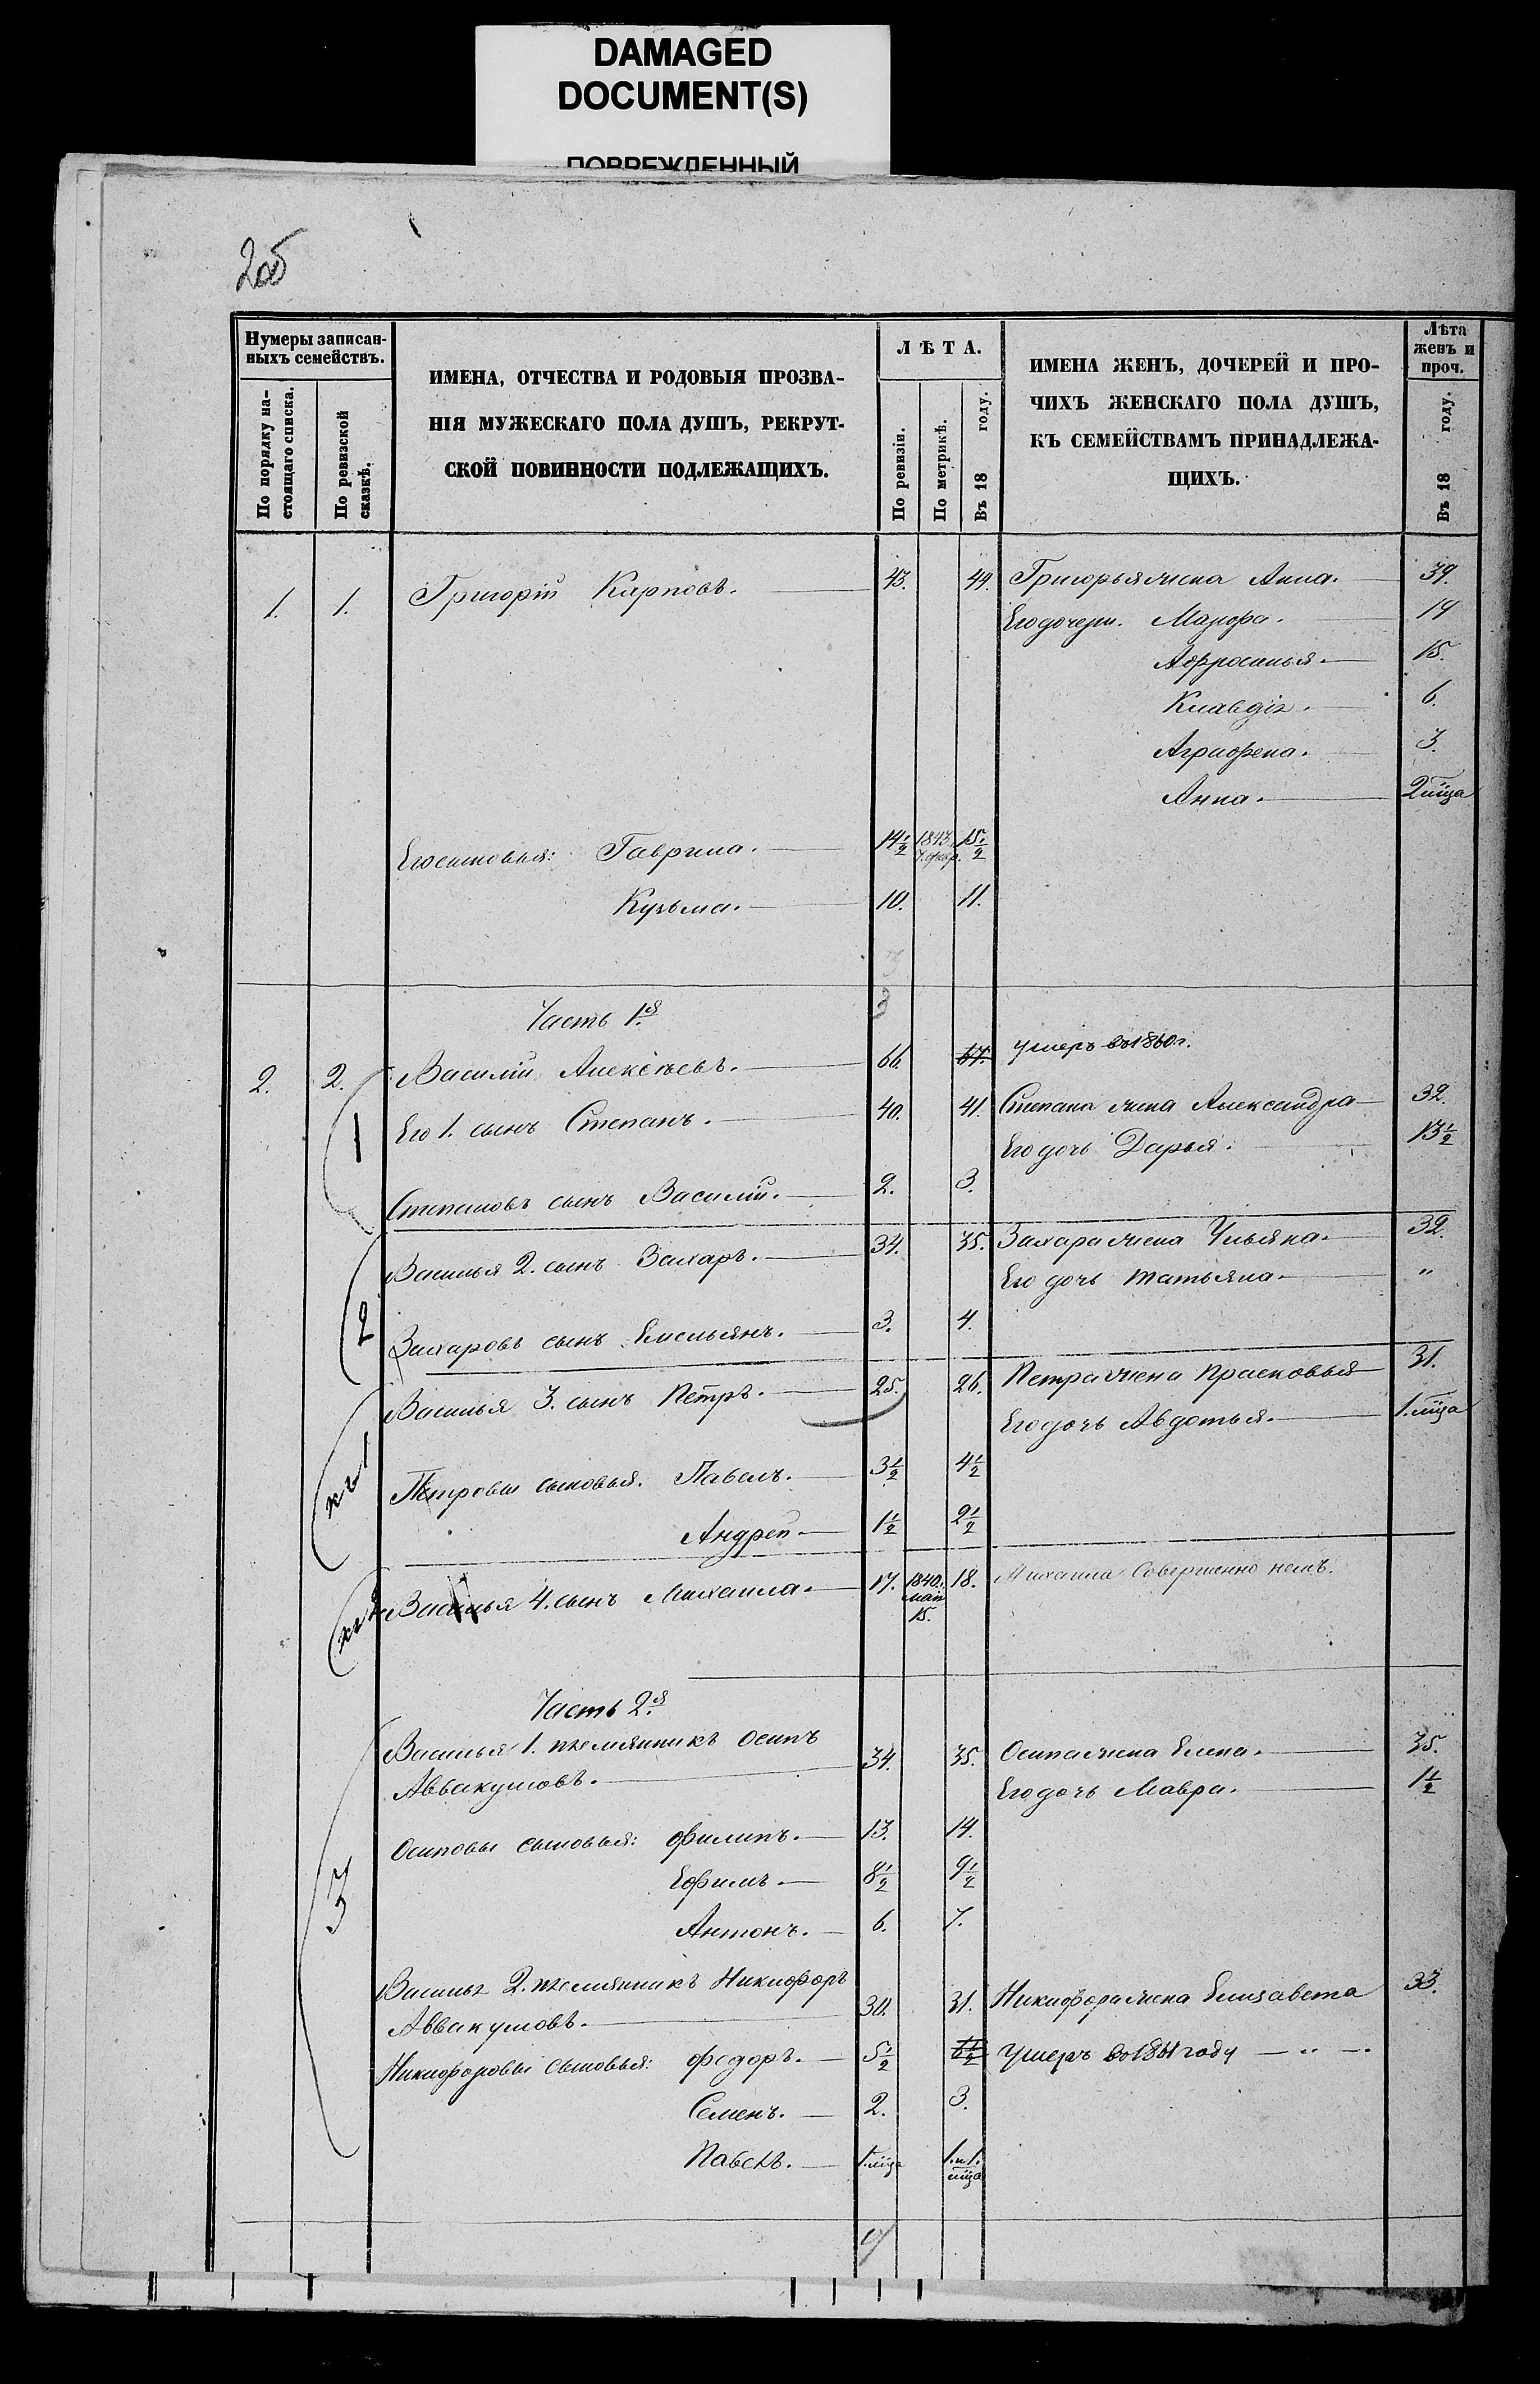 DAMAGED
DOCUMENT(S)
ПОВРЕЖДЕННЫЙ
Нумеры записан-
ныхъ семействъ.
По порядку на-
стоящаго списка.
По ревизской
сказкѣ.
ИМЕНА, ОТЧЕСТВА И РОДОВЫЯ ПРОЗВА-
НІЯ МУЖЕСКАГО ПОЛА ДУШЪ, РЕКРУТ-
СКОЙ ПОВИННОСТИ ПОДЛЕЖАЩИХЪ.
ЛѢТА.
По ревизіи.
По метрикѣ.
Въ 18 году.
ИМЕНА ЖЕНЪ, ДОЧЕРЕЙ И ПРО-
ЧИХЪ ЖЕНСКАГО ПОЛА ДУШЪ,
КЪ СЕМЕЙСТВАМЪ ПРИНАДЛЕЖА-
ЩИХЪ.
Лѣта
женъ и
проч.
Въ 18 году.
1. 1. Григорій Карповъ. 43. 44. Григорья жена Анна. 39.
Его дочери. Марфа. 19
Афросинья. 15.
Клавдія. 6.
Аграфена. 3.
Анна. 2 м̃ца
Его сыновья: Гаврила. 14½ 1843. 15½
Кузьма. 10. 11.
Часть 1.я
2. 2. Василій Алексѣевъ. 66. 67. умеръ въ 1860 г.
1 Его 1. сынъ Степанъ. 40. 41. Степана жена Александра 32.
Его дочь Дарья. 13½
Степановъ сынъ Василій. 2. 3.
Василья 2. сынъ Захаръ. 34. 35. Захара жена Ульяна. 32.
Его дочь Татьяна. "
2 Захаровъ сынъ Емельянъ. 3. 4.
Василья 3. сынъ Петръ. 25. 26. Петра жена Прасковья 31.
Его дочь Авдотья. 1. м̃ца
къ 1 Петровы сыновья. Павелъ. 3½ 4½
Андрей 1½ 2½
Василья 4. сынъ Михаила. 17. 1840. 18. Михаила Совершенно немъ.
маія
15.
Часть 2.я
Василья 1. племянникъ Осипъ
Аввакумовъ. 34. 35. Осипа жена Елена. 35.
Его дочь Мавра. 1½
3 Осиповы сыновья: Филипъ. 13. 14.
Ефимъ 8½ 9½
Антонъ. 6. 7.
Василья 2. племянникъ Никифоръ
Аввакумовъ. 30. 31. Никифора жена Елизавета 33.
Никифоровы сыновья: Федоръ. 5½ 6½ Умеръ въ 1861 году
Семенъ. 2. 3.
Павелъ. 1. м̃ца 1. и 1.
м̃ца
9